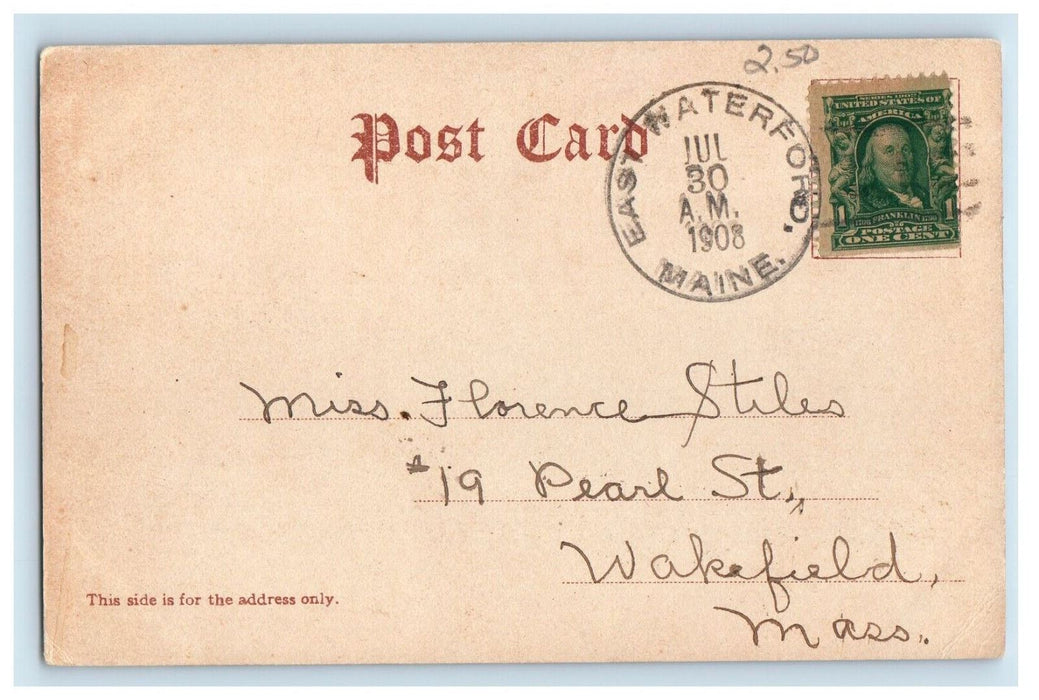 2.50
Post Card
EAST WATERFORD,
JUL
30
A.M.
1908
MAINE.
SERIES 1902
UNITED STATES OF
AMERICA
1
1706 FRANKLIN 1790
POSTAGE
ONE CENT
Miss. Florence Stiles
#19 Pearl St.,
Wakefield,
Mass.
This side is for the address only.